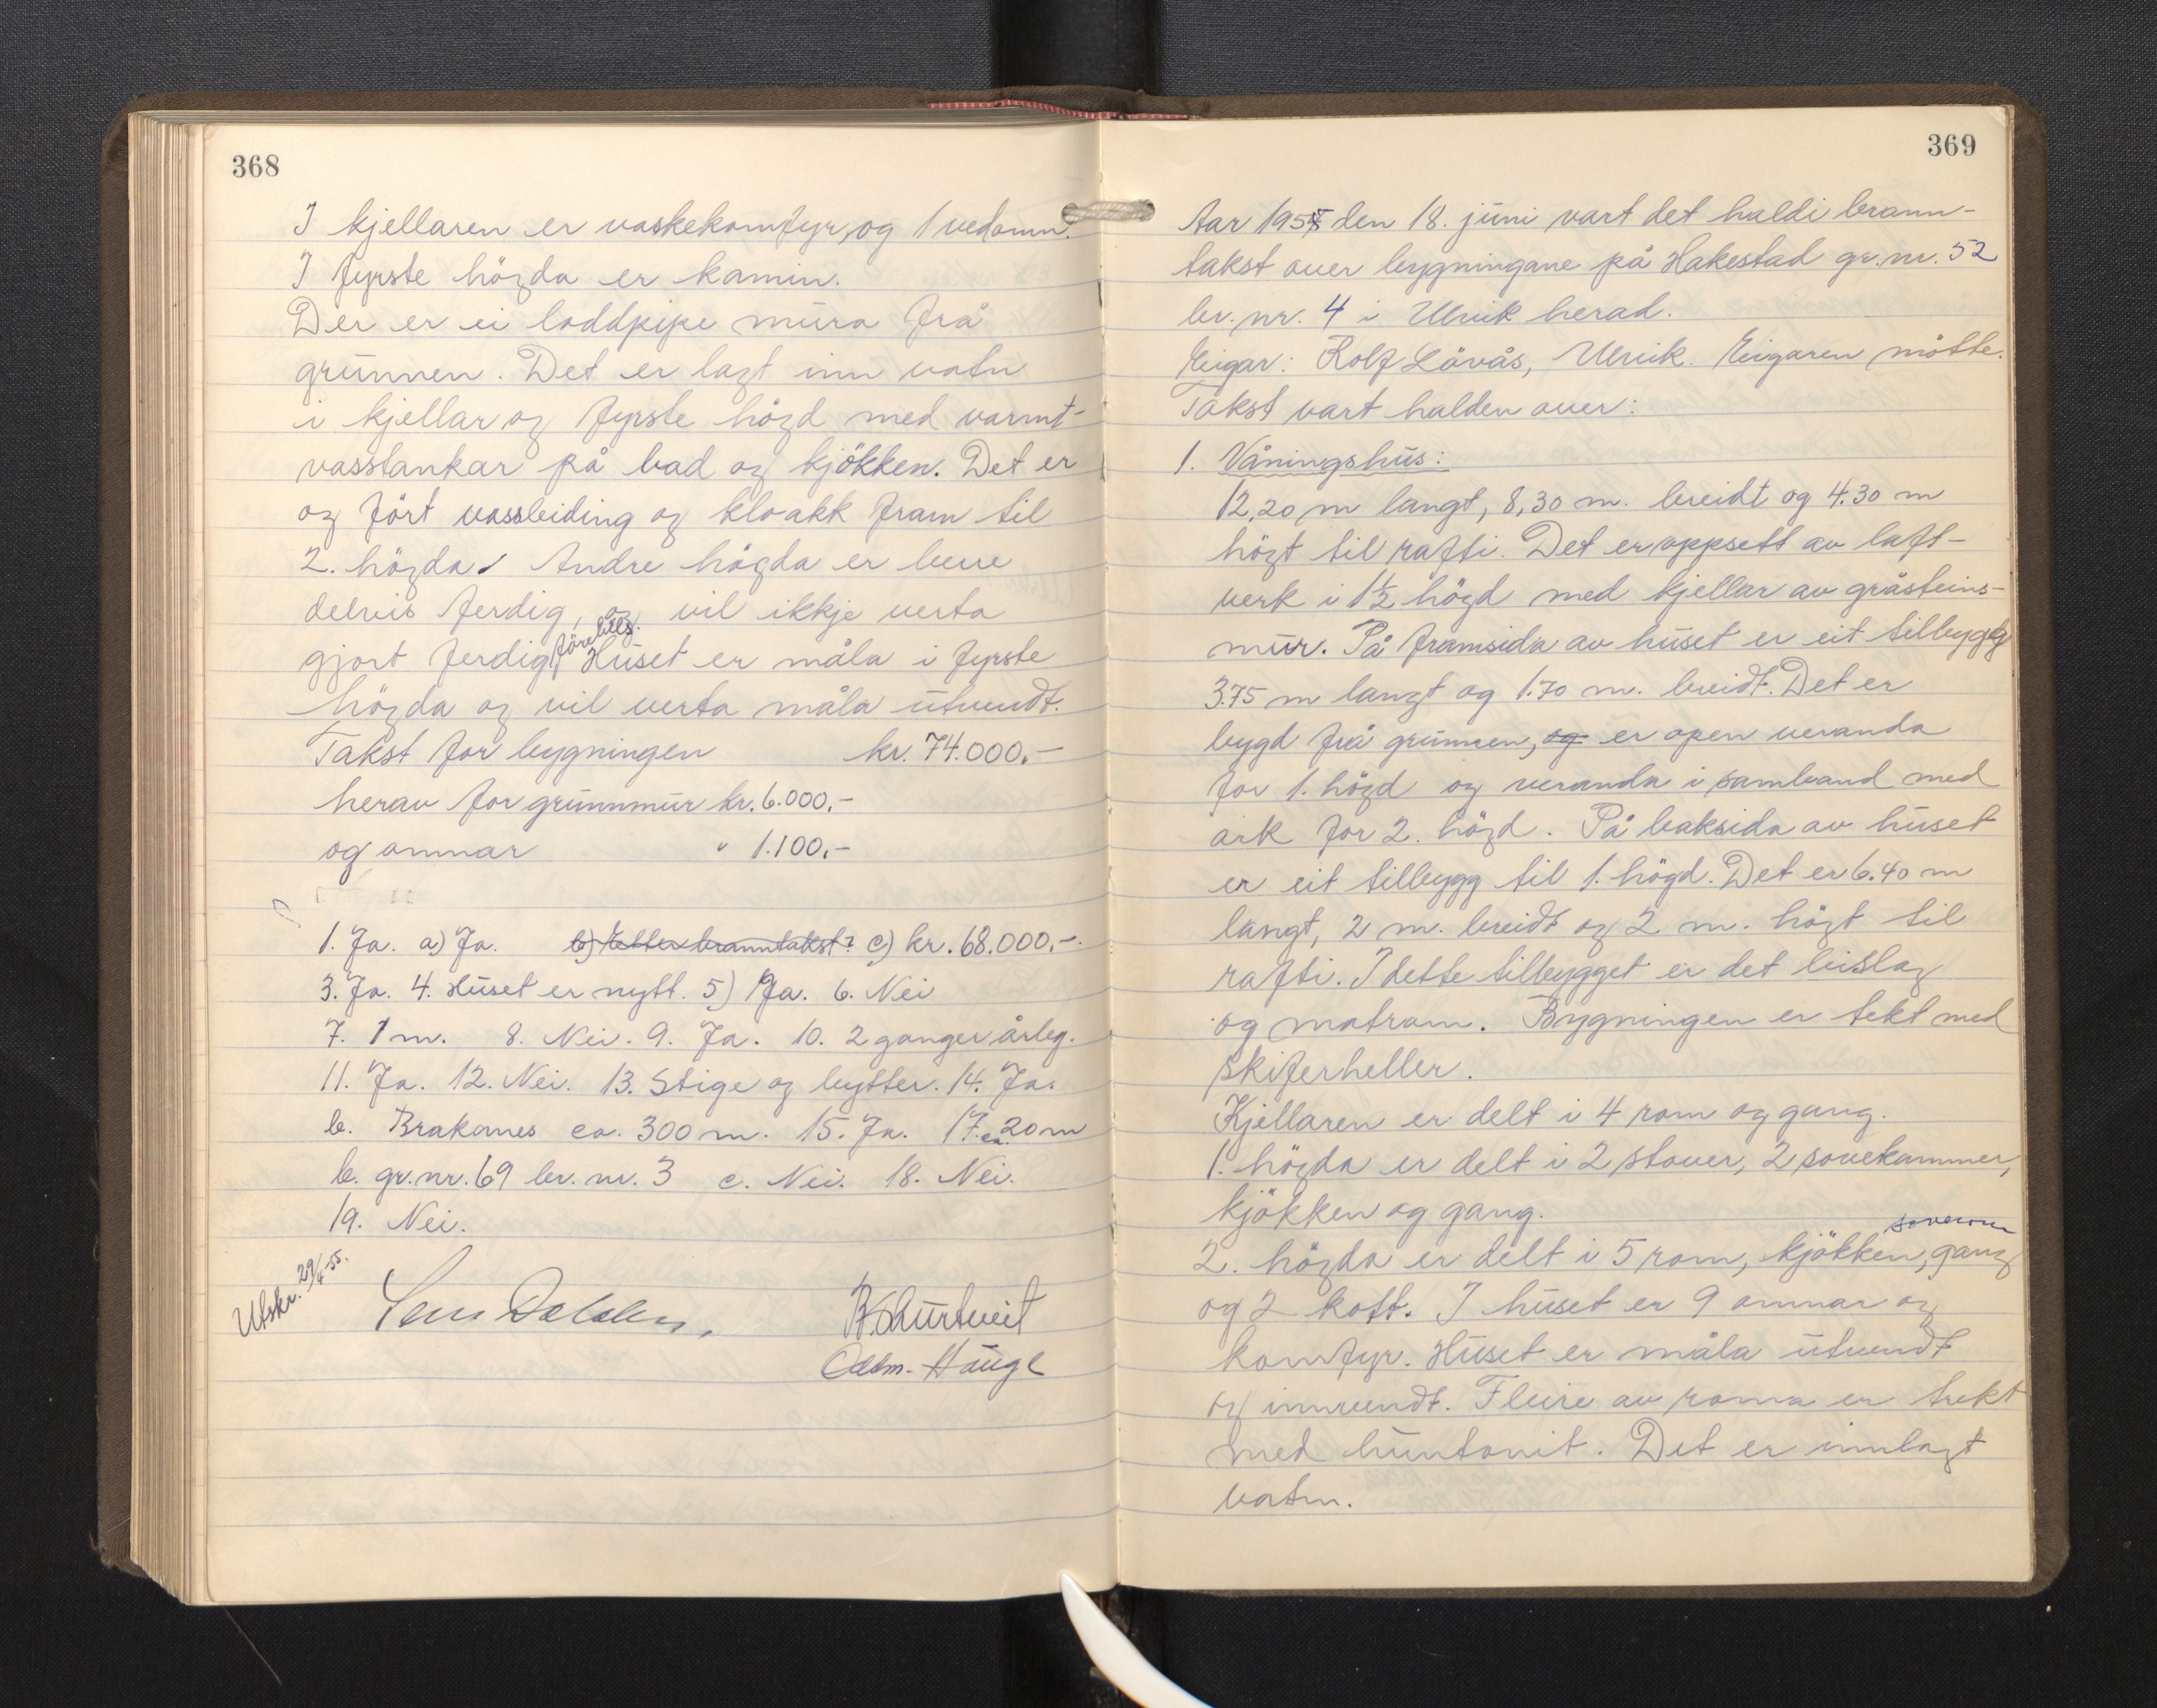 368
I kjellaren er vaskekomfyr, og 1 vedomn.
I fyrste högda er kamin.
Der er ei loddpipe mura frå
grunnen. Det er lagt inn vatn
i kjellar og fyrste högd med varmt-
vasstankar på bad og kjökken. Det er
og fört vassleiding og kloakk fram til
2. högda. Andre högda er berre
delvis ferdig, og vil ikkje verta
gjort ferdig förebils. Huset er måla i fyrste
högda og vil verta måla utvendt.
Takst for bygningen kr. 74.000.-
herav for grunnmur kr. 6.000.-
og omnar " 1.100.-
1. Ja. a) Ja. b) Etter branntakst? c) kr. 68.000.-.
3. Ja. 4. Huset er nytt. 5) Ja. 6. Nei
7. 1 m. 8. Nei. 9. Ja. 10. 2 ganger årleg.
11. Ja. 12. Nei. 13. Stige og bytter. 14. Ja.
b. Brakanes ca. 300 m. 15. Ja. 17. ca. 20 m
b. gr. nr. 69 br. nr. 3 c. Nei. 18. Nei.
19. Nei.
Utskr. 29/4-55.
Odbm. Hauge
369
Aar 1955 den 18. juni vart det haldi brann-
takst over bygningane på Hakestad gr. nr. 52
br. nr. 4 i Ulvik herad.
Eigar: Rolf Lövås, Ulvik. Eigaren mötte.
Takst vart halden over:
1. Våningshus:
12,20 m langt, 8,30 m. breidt og 4.30 m
högt til rafti. Det er oppsett av laft-
verk i 1½ högd med kjellar av gråsteins-
mur. På framsida av huset er eit tilbygg
3.75 m langt og 1.70 m. breidt. Det er
bygd frå grunnen, og er open veranda
for 1. högd og veranda i samband med
ark for 2. högd. På baksida av huset
er eit tilbygg til 1. högd. Det er 6.40 m
langt, 2 m. breidt og 2 m. högt til
rafti. I dette tilbygget er det bislag
og matrom. Bygningen er tekt med
skiferheller.
Kjellaren er delt i 4 rom og gang.
1. högda er delt i 2 stover, 2 sovekammer,
kjökken og gang.
2. högda er delt i 5 rom, kjökken, soverom gang
og 2 kott. I huset er 9 omnar og
komfyr. Huset er måla utvendt
og innvendt. Fleire av roma er trekt
med huntonit. Det er innlagt
vatn.